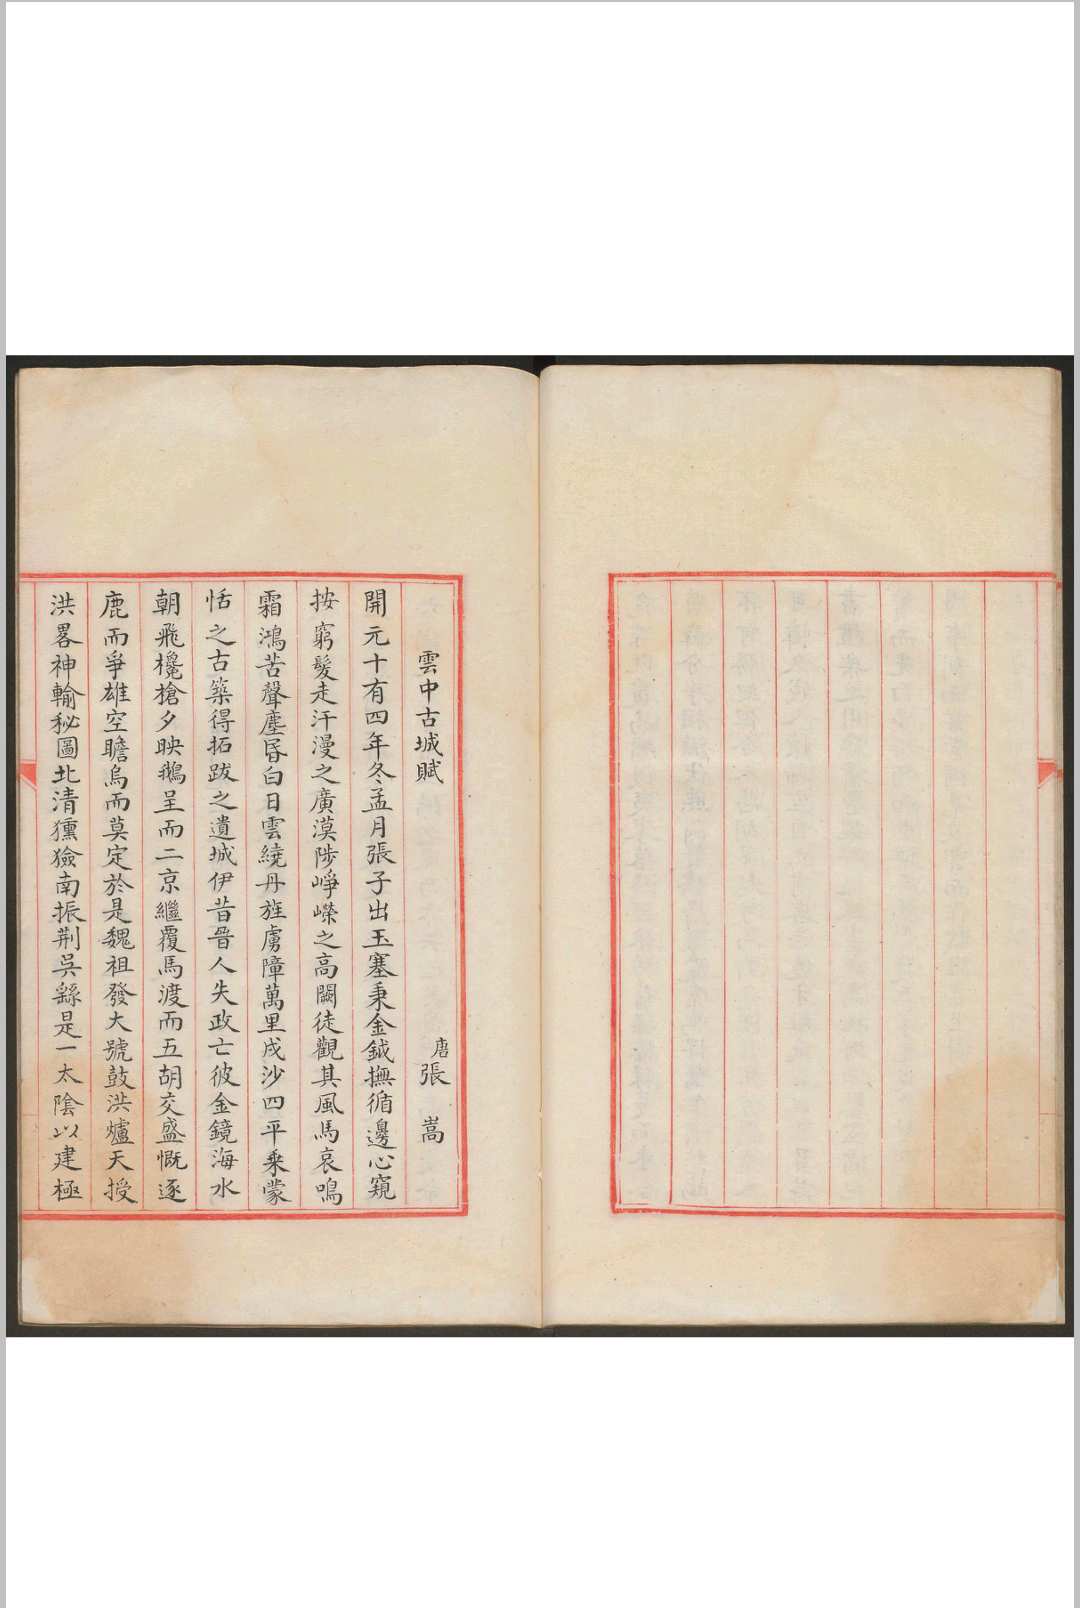 雲中古城賦
唐張嵩
開元十有四年冬孟月張子出玉塞秉金鉞撫循邊心窺
按窮髮走汗漫之廣漠陟崢嶸之高闕徒觀其風馬哀鳴
霜鴻苦聲塵昏白日雲繞丹旌虜障萬里戍沙四平乘蒙
恬之古築得拓跋之遺城伊昔晉人失政亡彼金鏡海水
朝飛欃槍夕映鵝呈而二京繼覆馬渡而五胡交盛慨逐
鹿而爭雄空瞻烏而莫定於是魏祖發大號鼓洪爐天授
洪畧神輸秘圖北清獯獫南振荆吳繇是一太陰以建極